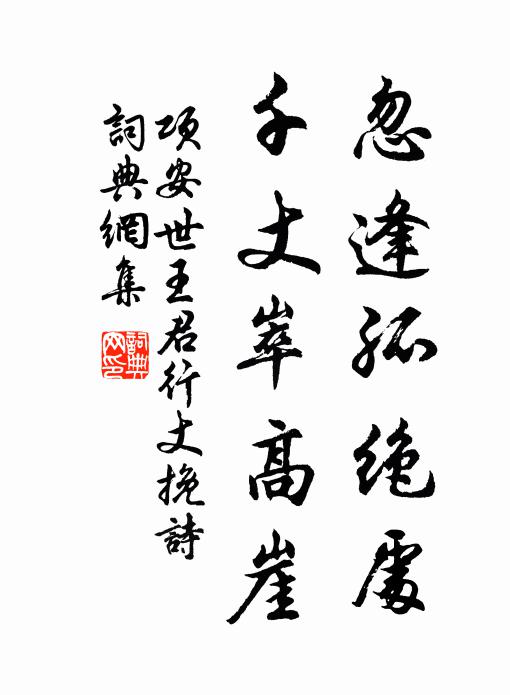 忽逢孤絶處
千丈崒高崖
項安世王君行丈挽詩
詞典網集
詞典
网印